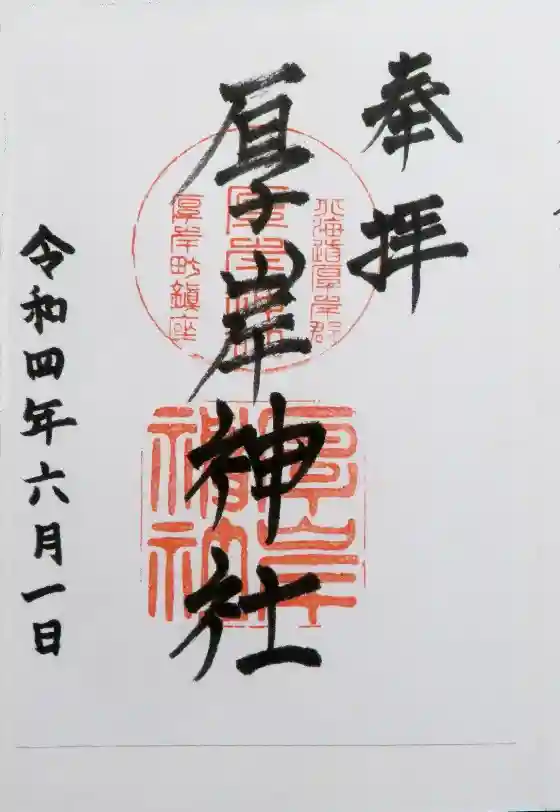 奉拝
厚岸神社
北海道厚岸郡
厚岸町鎮座
厚岸神社
令和四年六月一日